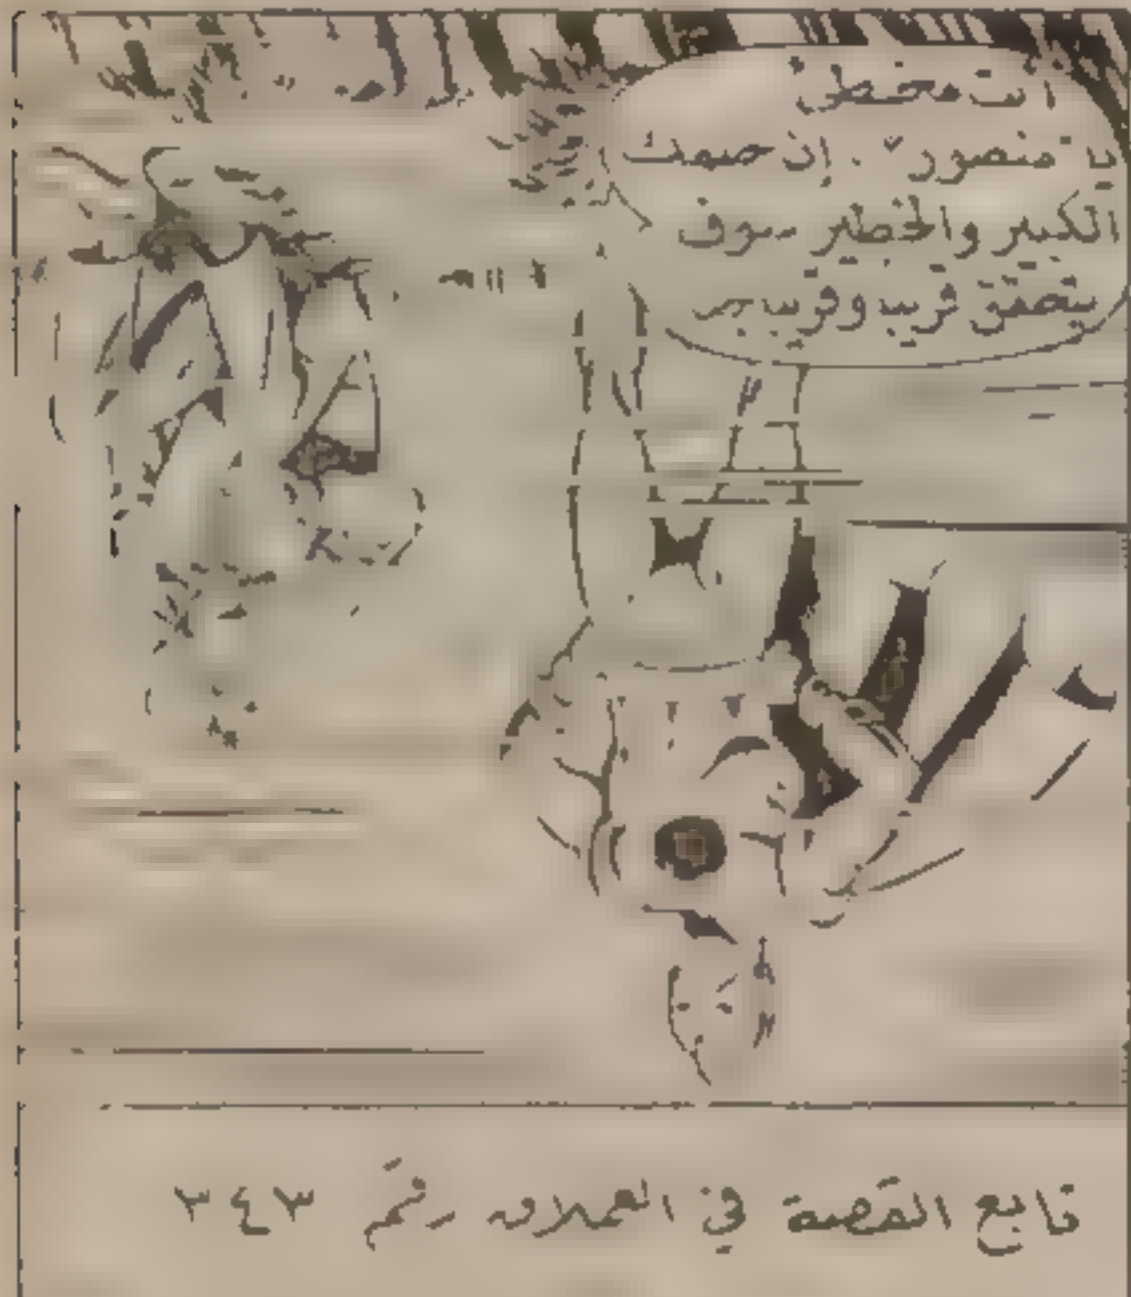 أنت مخطئ
يا "منصور". إن حلمك
الكبير والخطير سوف
يتحقق قريبا وقريبا جدا
تابع القصة في العملاق رقم ٣٤٣